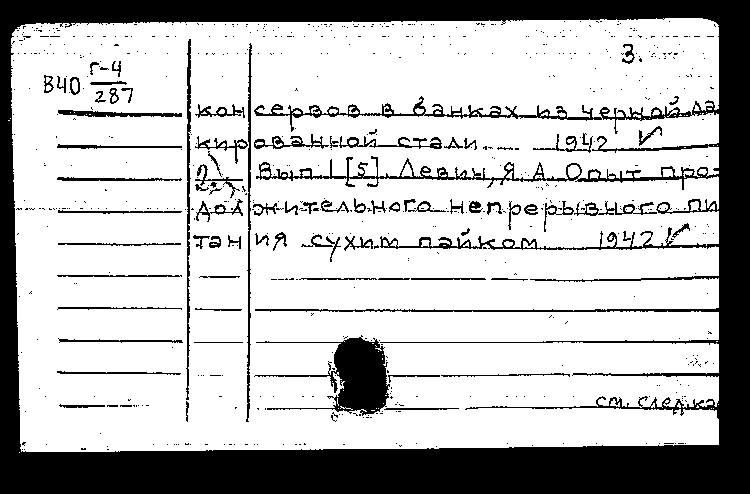 3.
В40 Г-4
287
консервов в банках из черной ла
кированной стали. 1942
Вып 1 [5]. Левин, Я. А. Опыт про-
должительного непрерывного пи
тания сухим пайком 1942
см. след. ка